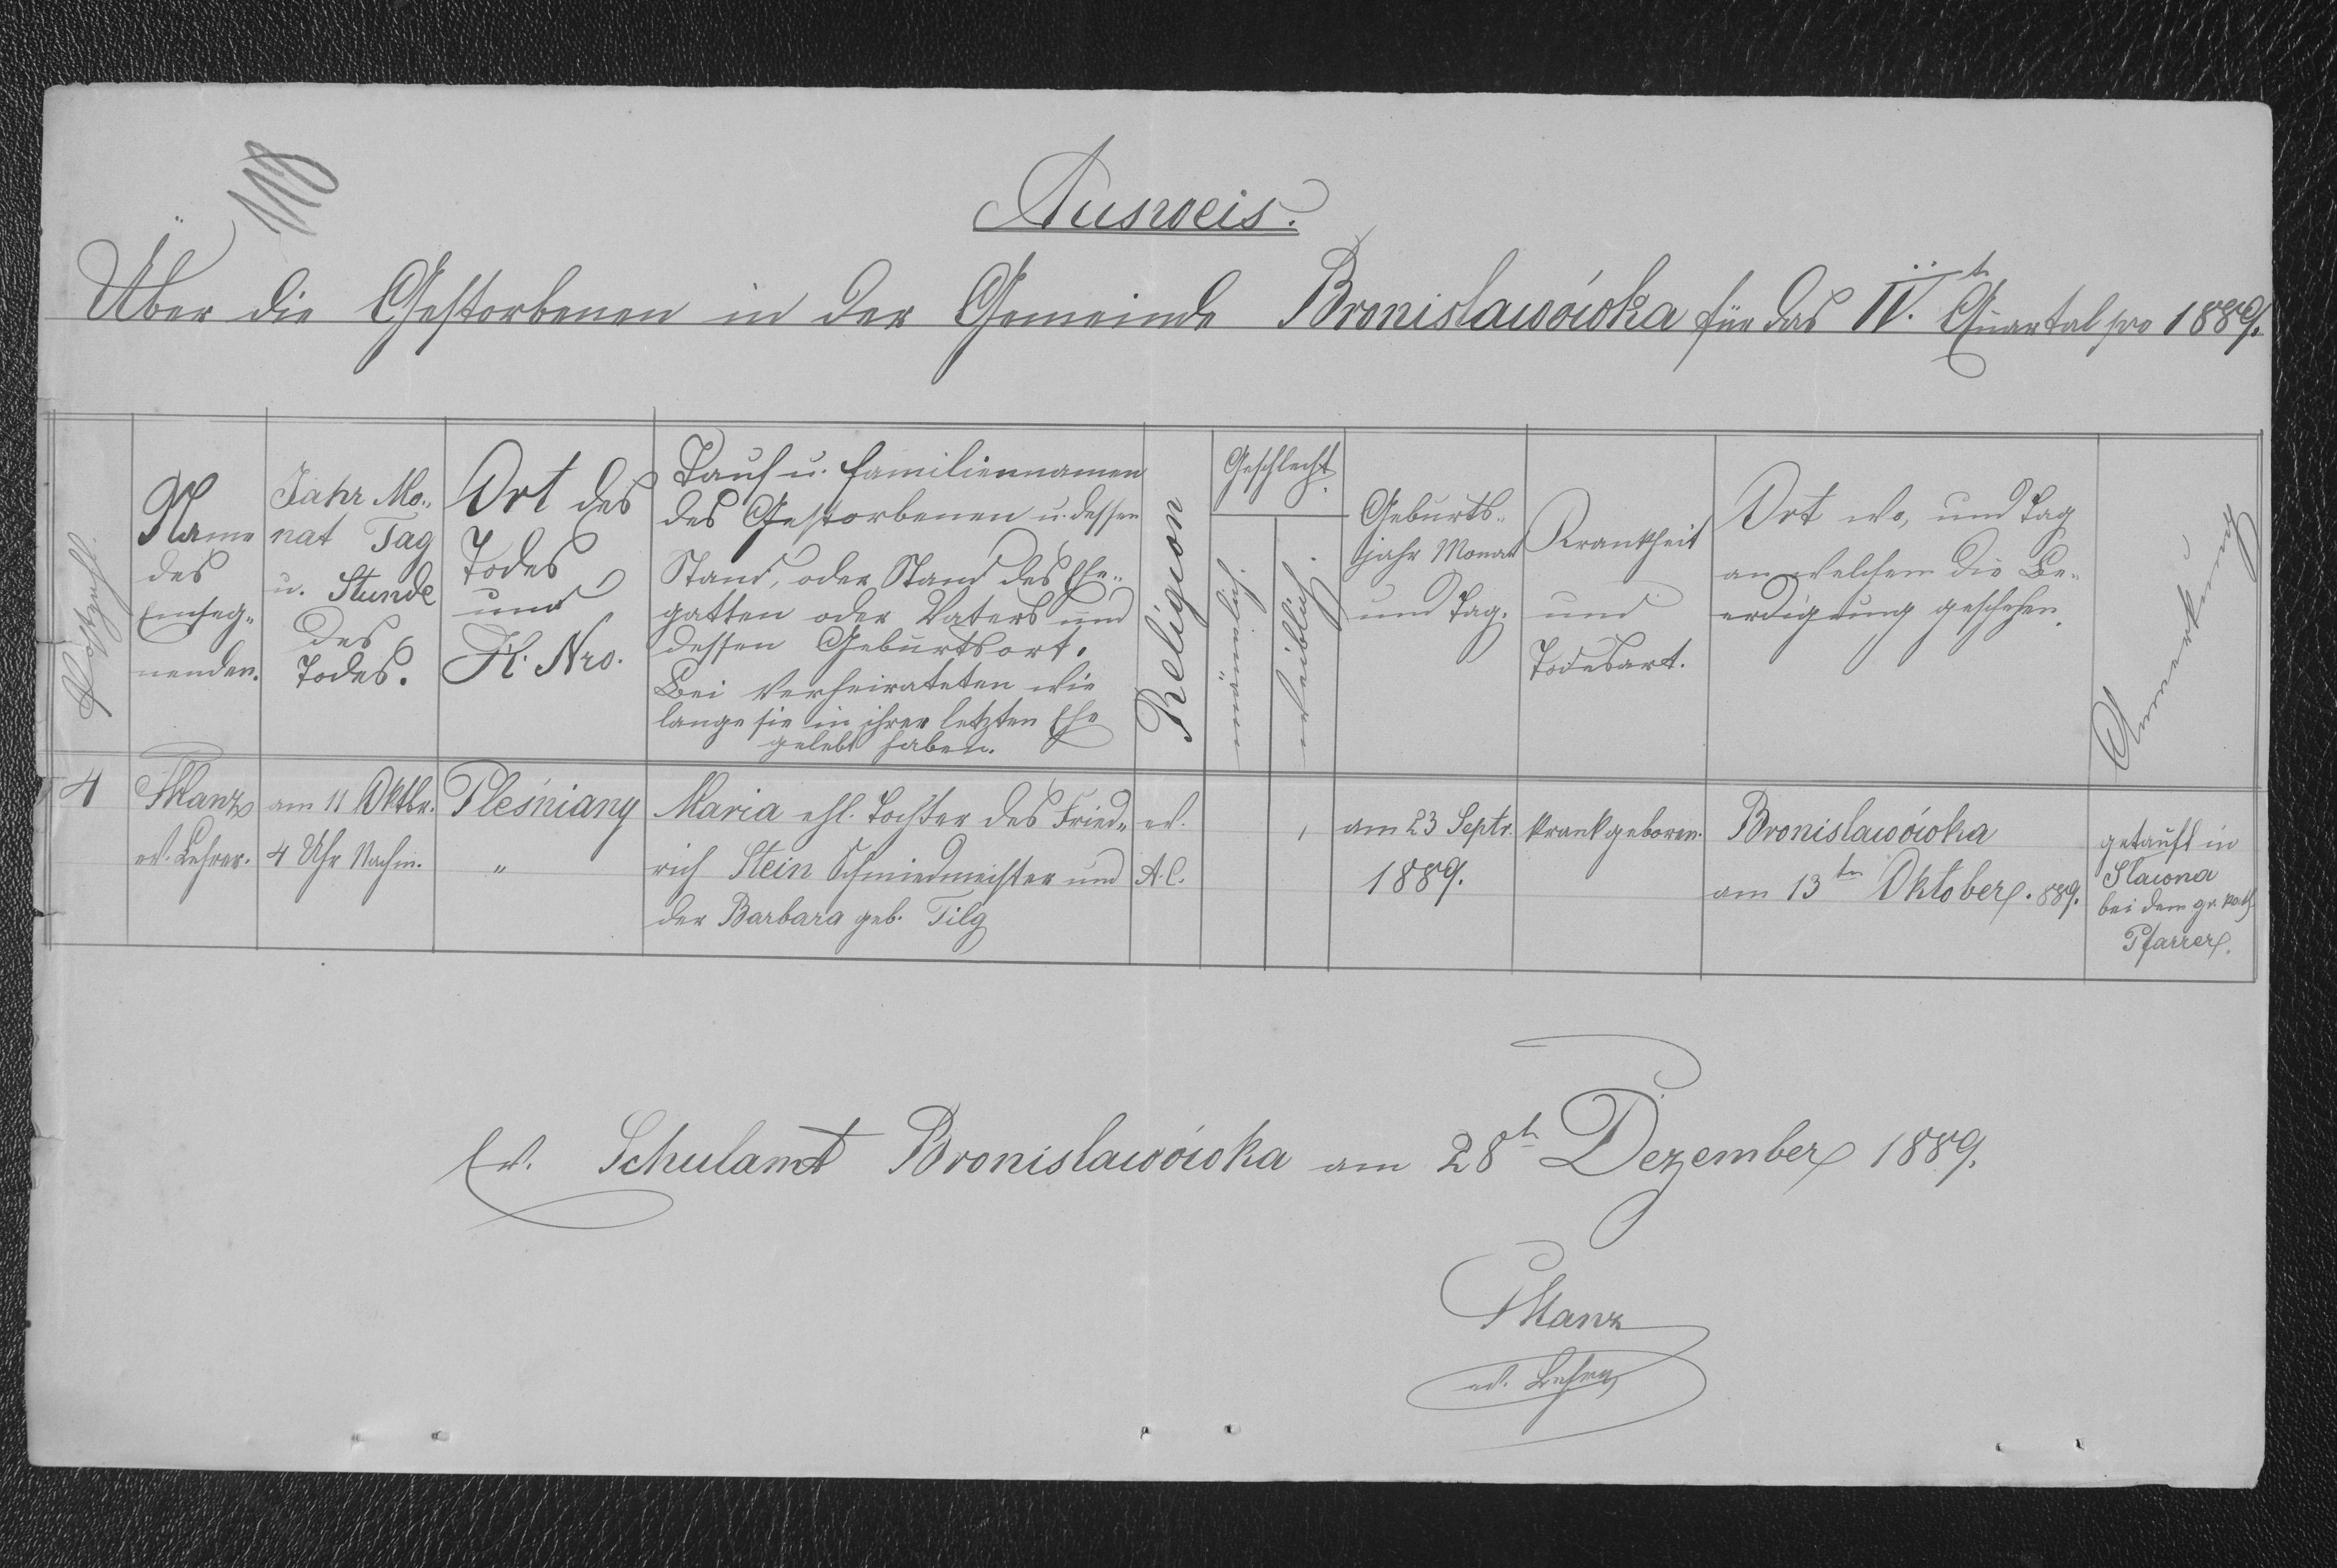 Ausweis.
Über die Gestorbenen in der Gemeinde Bronisławówka für das IV.t Quartal pro 1889.
Postzahl.
Name
des
Einseg-
nenden.
Jahr Mo-
nat Tag
u. Stunde
des
Todes.
Ort des
Todes
und
H. Nro.
Tauf u. Familiennamen
des Gestorbenen u. dessen
Stand, oder Stand des Ehe-
gatten oder Vaters und
dessen Geburtsort.
Bei Verheirateten wie
lange sie in ihrer letzten Ehe
gelebt haben.
Religion
Geschlecht.
männlich
weiblich.
Geburts-
jahr Monat
und Tag.
Krankheit
und
Todesart.
Ort wo, und Tag
an welchem die Be-
erdigung geschehen.
Anmerkung
4
Manz
ev. Lehrer.
am 11 Oktbr.
4 Uhr Nachm.
Pleśniany
"
Maria ehl. Tochter des Fried-
rich Stein Schmiedmeister und
der Barbara geb. Tilg
ev.
A.C.
1
am 23 Septr.
1889.
krank geboren.
Bronisławówka
am 13ten Oktober. 889.
getauft in
Sławna
bei dem gr. kath
Pfarrer.
Ev. Schulamt Bronisławówka am 28t Dezember 1889.
Manz
ev. Lehrer